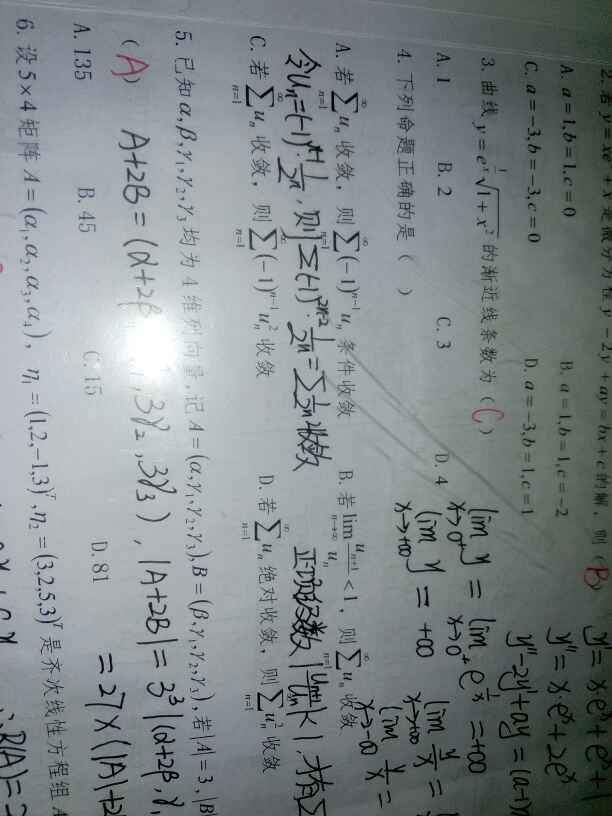 2. 若 y = xe^x + x 是微分方程 y″ − 2y′ + ay = bx + c 的解，则（B）
A. a = 1, b = 1, c = 0
B. a = 1, b = 1, c = −2
C. a = −3, b = −3, c = 0
D. a = −3, b = 1, c = 1
y′ = xe^x + e^x + 1
y″ = xe^x + 2e^x
y″ − 2y′ + ay = (a−1)
3. 曲线 y = e^{1/x}√(1 + x²) 的渐近线条数为（C）
A. 1
B. 2
C. 3
D. 4
lim_{x→0⁺} y = lim_{x→0⁺} e^{1/x} = +∞
lim_{x→+∞} y = +∞
lim_{x→+∞} y/x =
lim_{x→−∞} y/x =
4. 下列命题正确的是（ ）
A. 若 ∑_{n=1}^{∞} u_n 收敛，则 ∑_{n=1}^{∞} (−1)^{n−1} u_n 条件收敛
B. 若 lim_{n→∞} u_{n+1}/u_n < 1，则 ∑_{n=1}^{∞} u_n 收敛
正项级数 |u_{n+1}/u_n| < 1，才有∑
C. 若 ∑_{n=1}^{∞} u_n 收敛，则 ∑_{n=1}^{∞} (−1)^{n−1} u_n² 收敛
D. 若 ∑_{n=1}^{∞} u_n 绝对收敛，则 ∑_{n=1}^{∞} u_n² 收敛
5. 已知 α, β, γ₁, γ₂, γ₃ 均为 4 维列向量，记 A = (α, γ₁, γ₂, γ₃), B = (β, γ₁, γ₂, γ₃), 若 |A| = 3, |B|
（A）
A+2B = (α+2β , 3γ₂, 3γ₃), |A+2B| = 3³|(α+2β, γ₁
= 27×(|A|+2
A. 135
B. 45
C. 15
D. 81
6. 设 5×4 矩阵 A = (α₁, α₂, α₃, α₄), η₁ = (1,2,−1,3)^T, η₂ = (3,2,5,3)^T 是齐次线性方程组 A